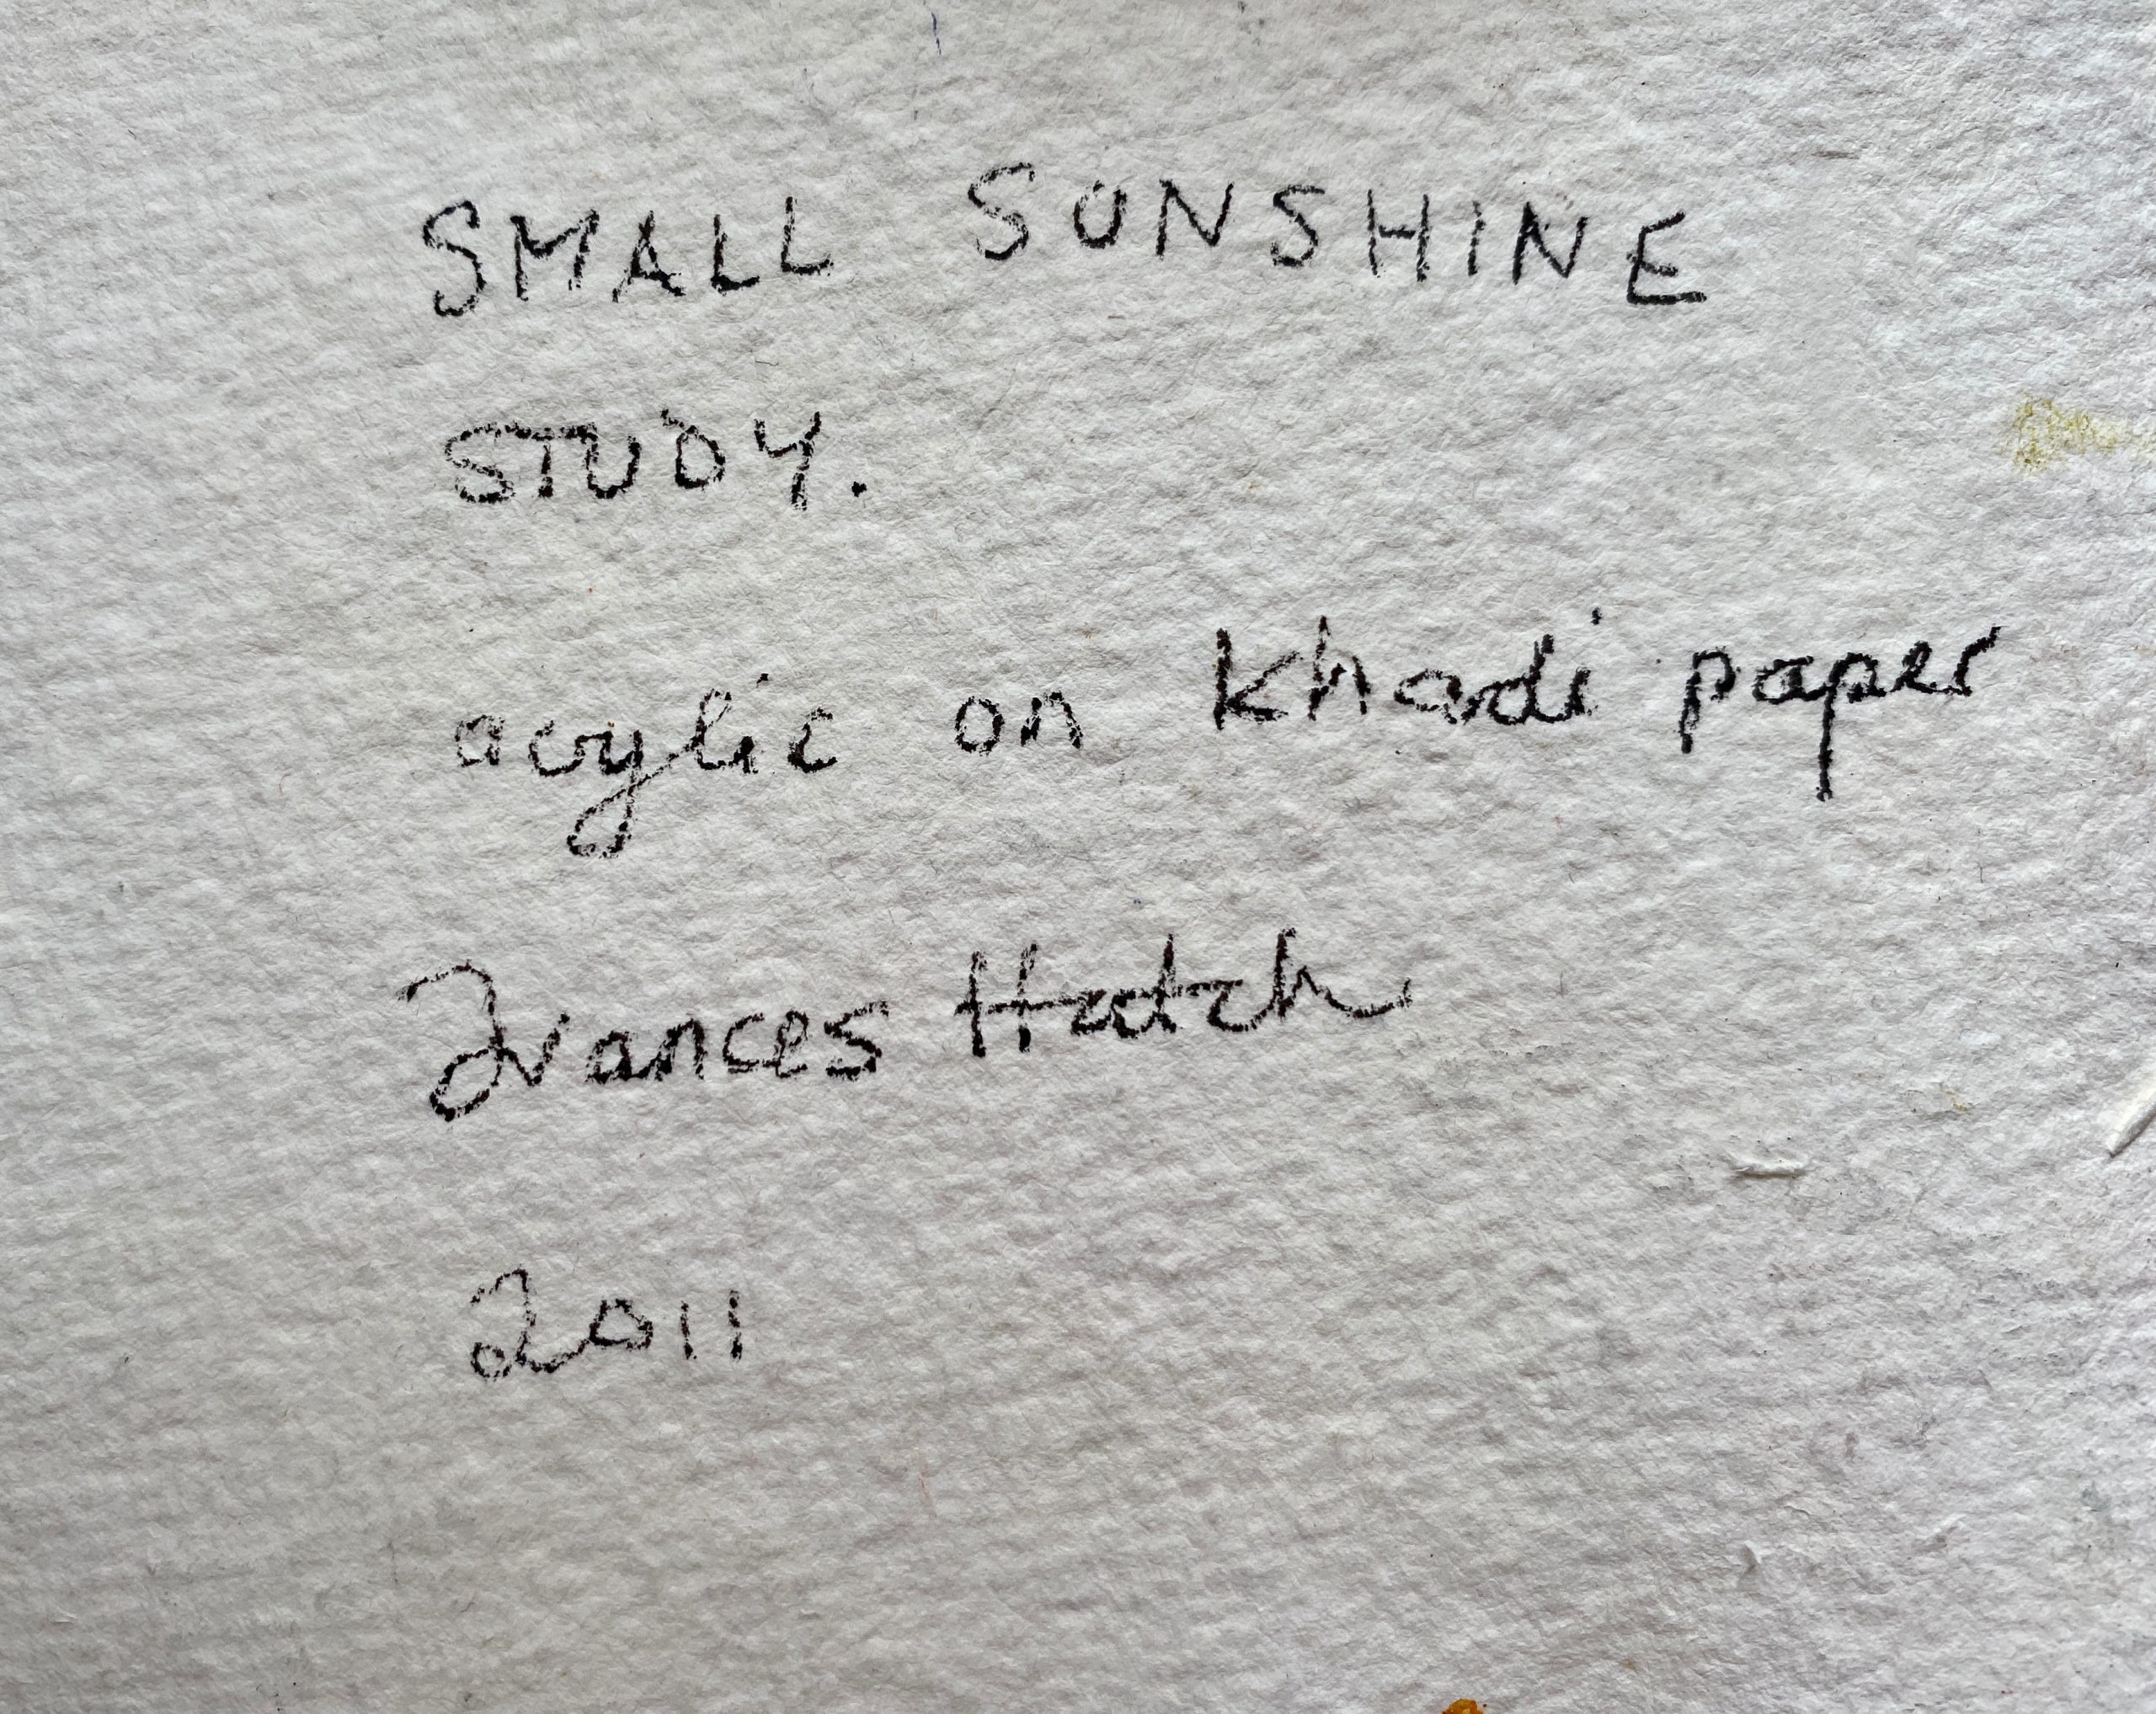 SMALL SUNSHINE
STUDY.
acrylic on Khadi paper
Frances Hatch
2011